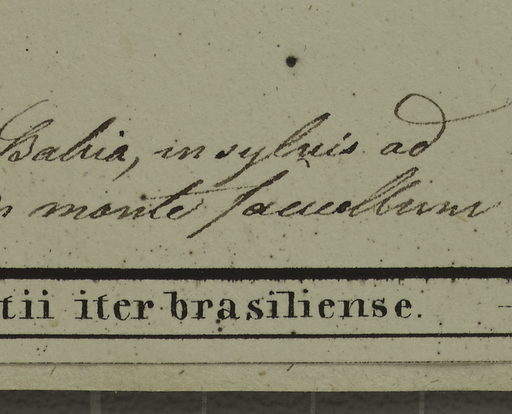 Bahia, in sylvis ad
monte
tii iter brasiliense.